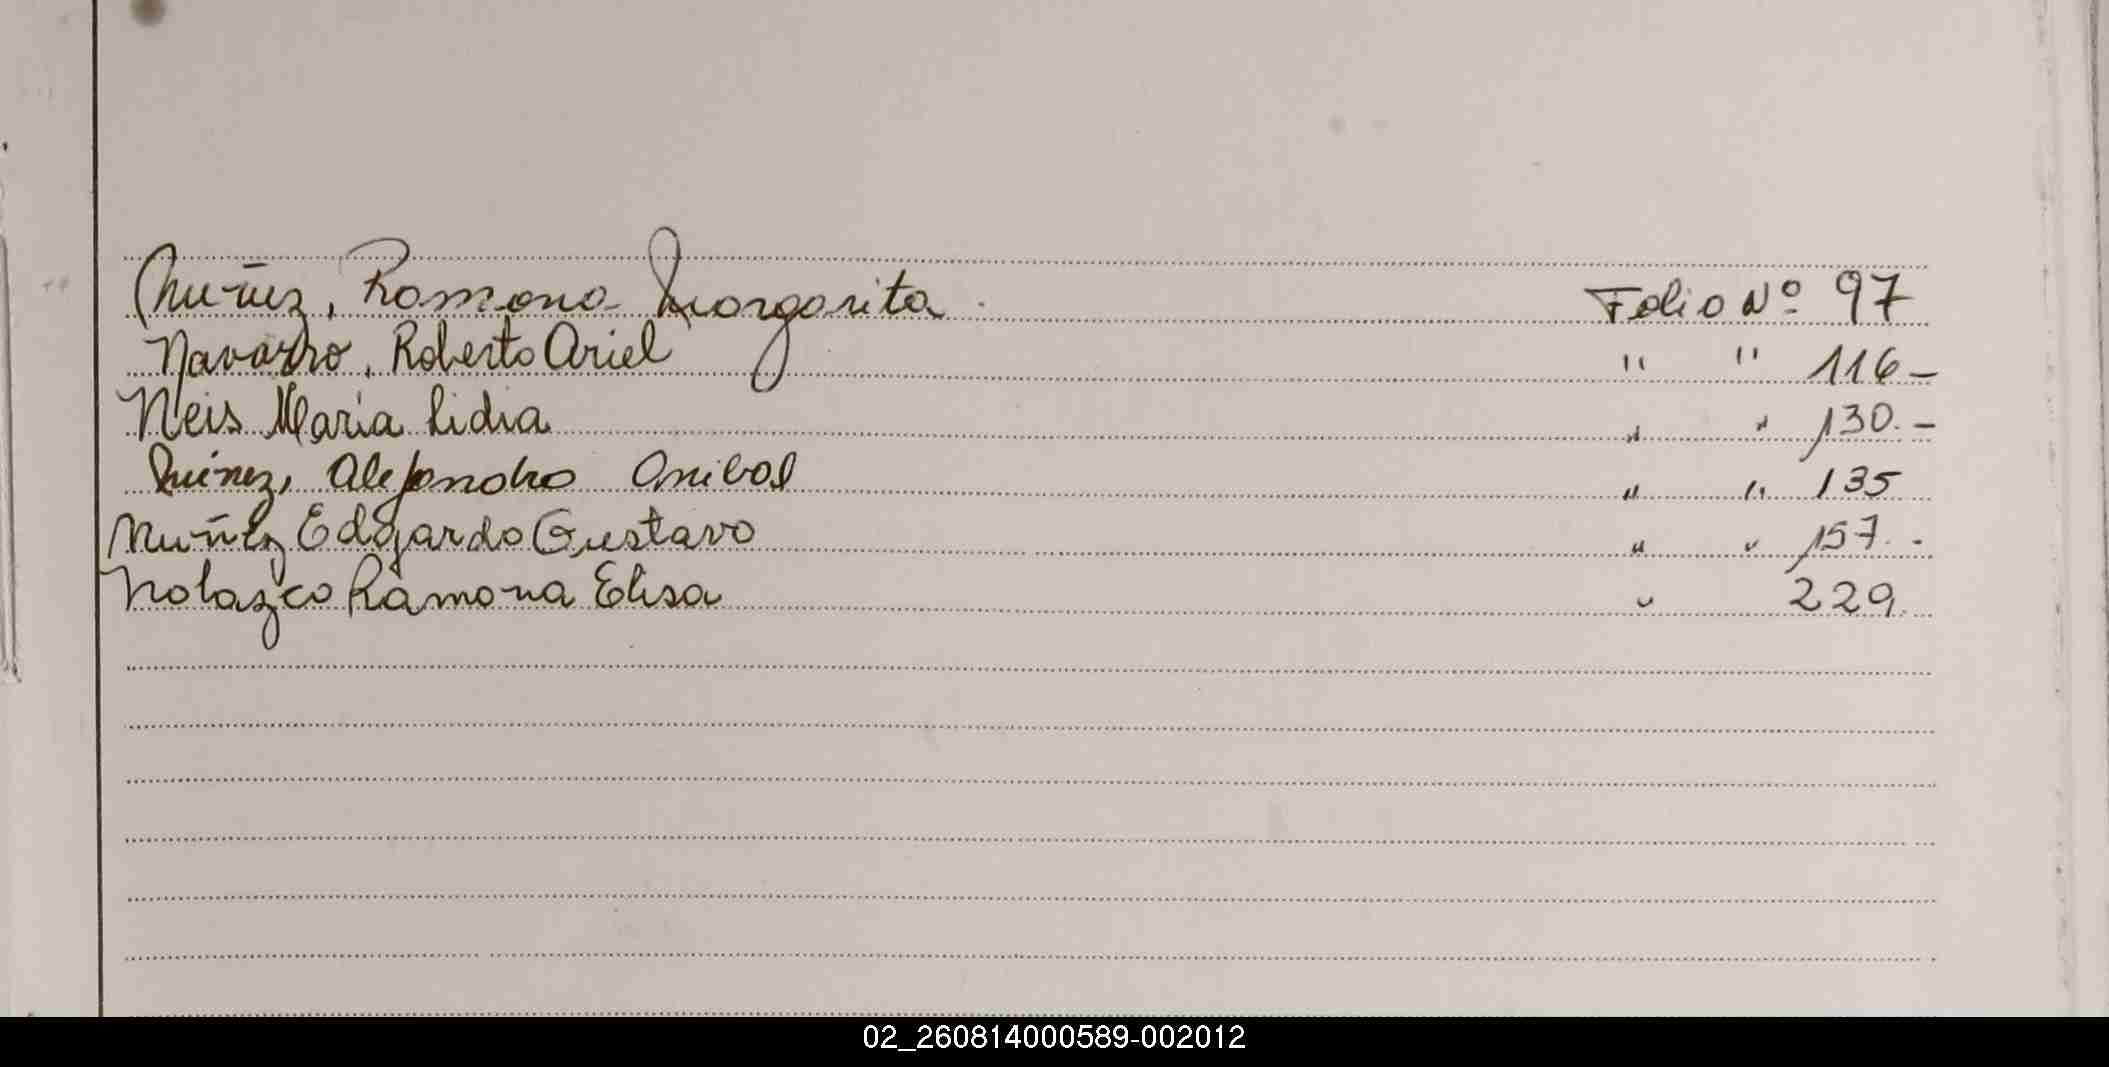 Nuñez, Ramona Margarita. Folio Nº 97
Navarro, Roberto Ariel " " 116-
Neis Maria Lidia " " 130.-
Alejandro Anibal " " 135
Nuñez Edgardo Gustavo " " 157.-
Nolazco Ramona Elisa " 229.
02_260814000589-002012